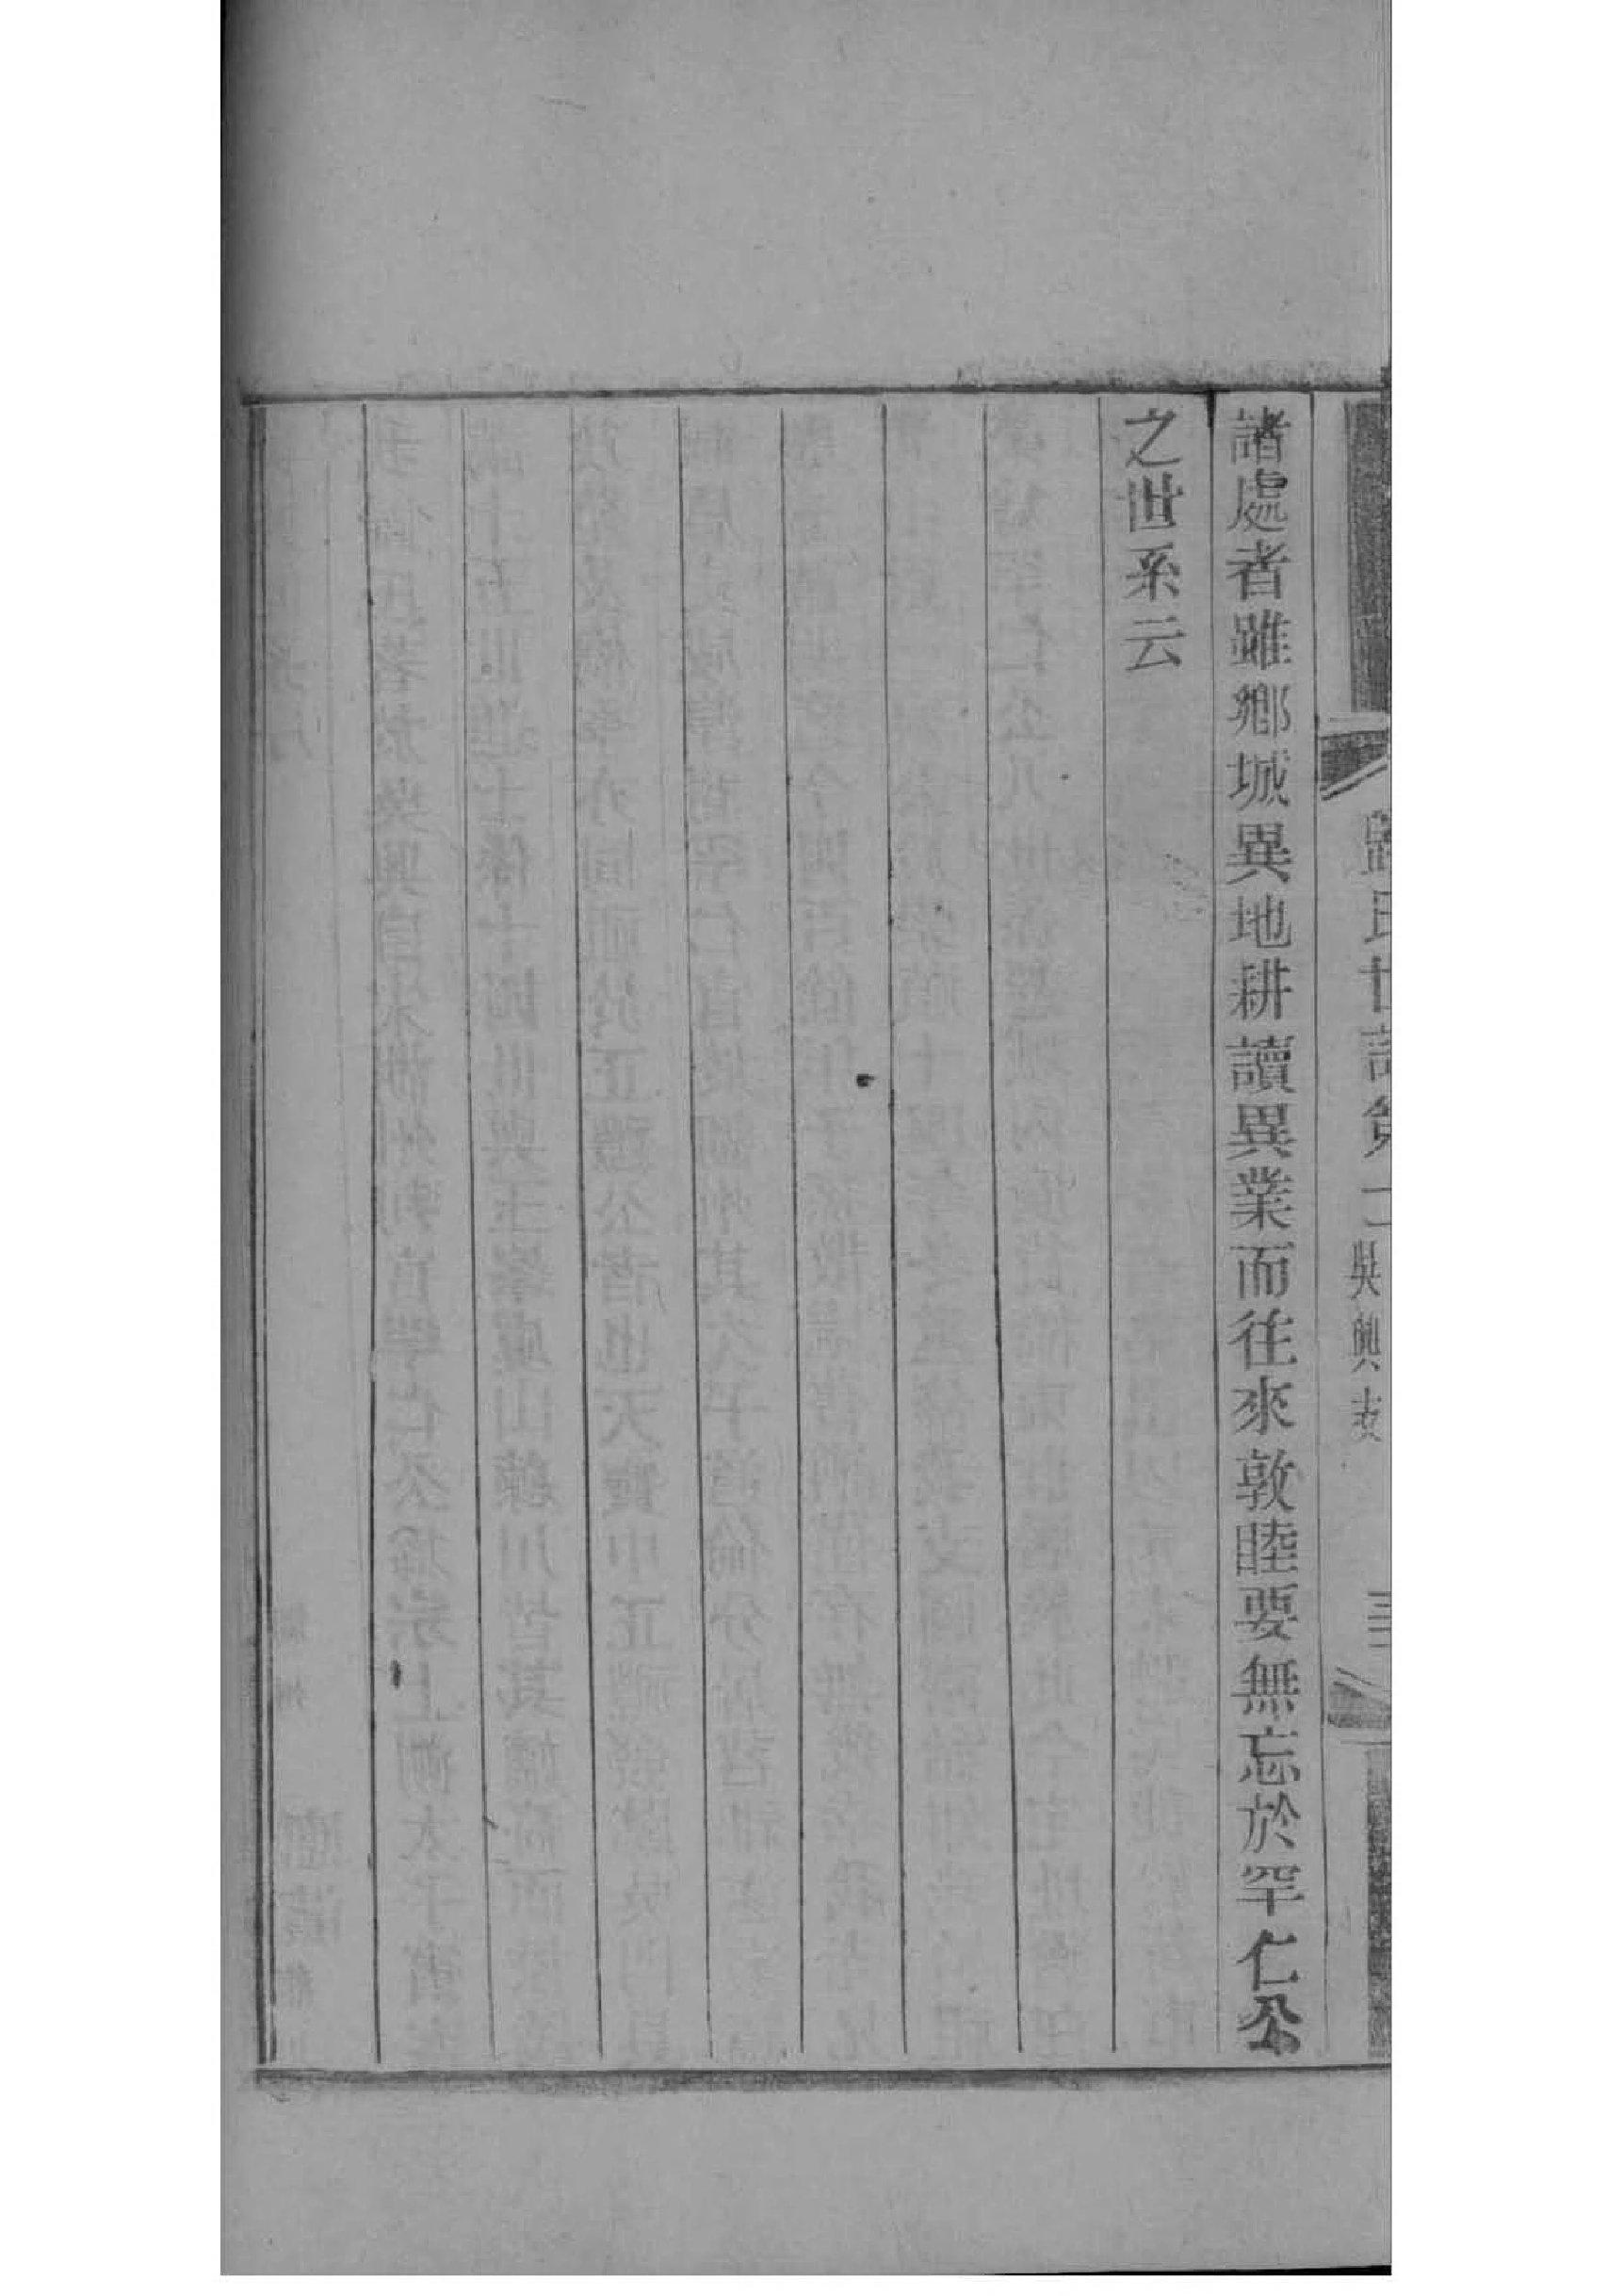 歸氏世譜第二 吳興支 三
諸處者雖鄉城異地耕讀異業而往來敦睦要無忘於罕仁公
之世系云